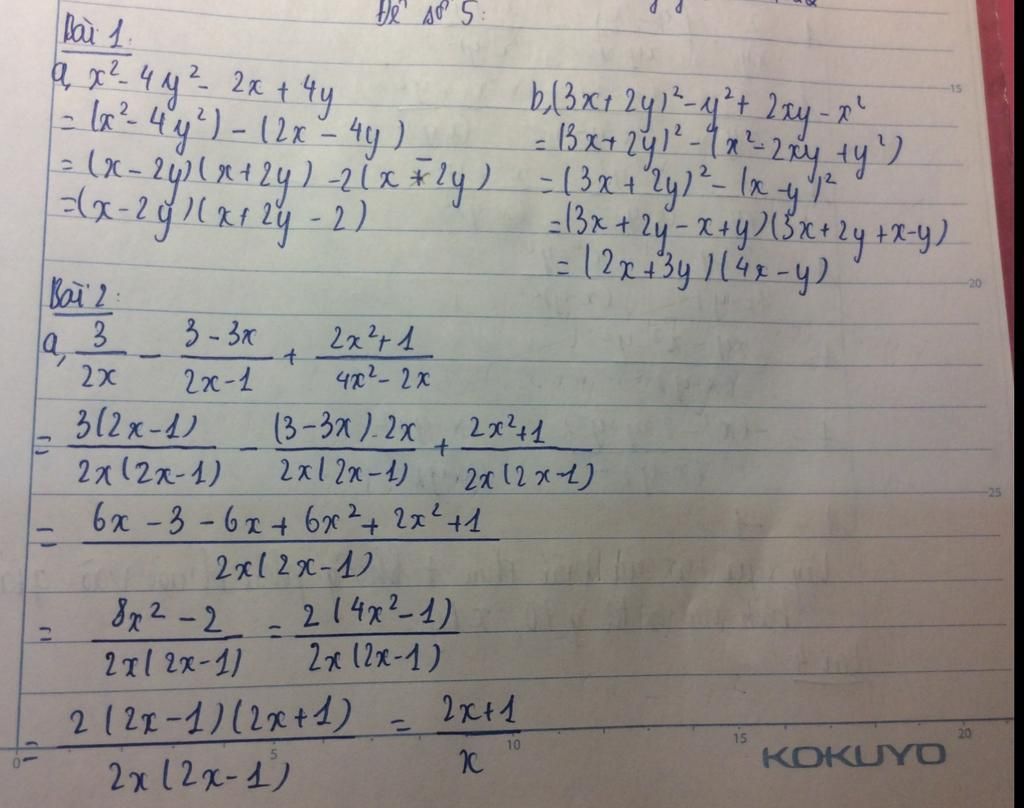 Đề số 5:
Bài 1:
a, x² - 4y² - 2x + 4y
= (x² - 4y²) - (2x - 4y)
= (x - 2y)(x + 2y) - 2(x - 2y)
= (x - 2y)(x + 2y - 2)
b, (3x + 2y)² - y² + 2xy - x²
= (3x + 2y)² - (x² - 2xy + y²)
= (3x + 2y)² - (x - y)²
= (3x + 2y - x + y)(3x + 2y + x - y)
= (2x + 3y)(4x - y)
Bài 2:
a, 3/2x - (3 - 3x)/(2x - 1) + (2x² + 1)/(4x² - 2x)
= 3(2x - 1)/2x(2x - 1) - (3 - 3x).2x/2x(2x - 1) + (2x² + 1)/2x(2x - 1)
= (6x - 3 - 6x + 6x² + 2x² + 1)/2x(2x - 1)
= (8x² - 2)/2x(2x - 1) = 2(4x² - 1)/2x(2x - 1)
= 2(2x - 1)(2x + 1)/2x(2x - 1) = (2x + 1)/x
15
20
25
0 5 10 15 20
KOKUYO